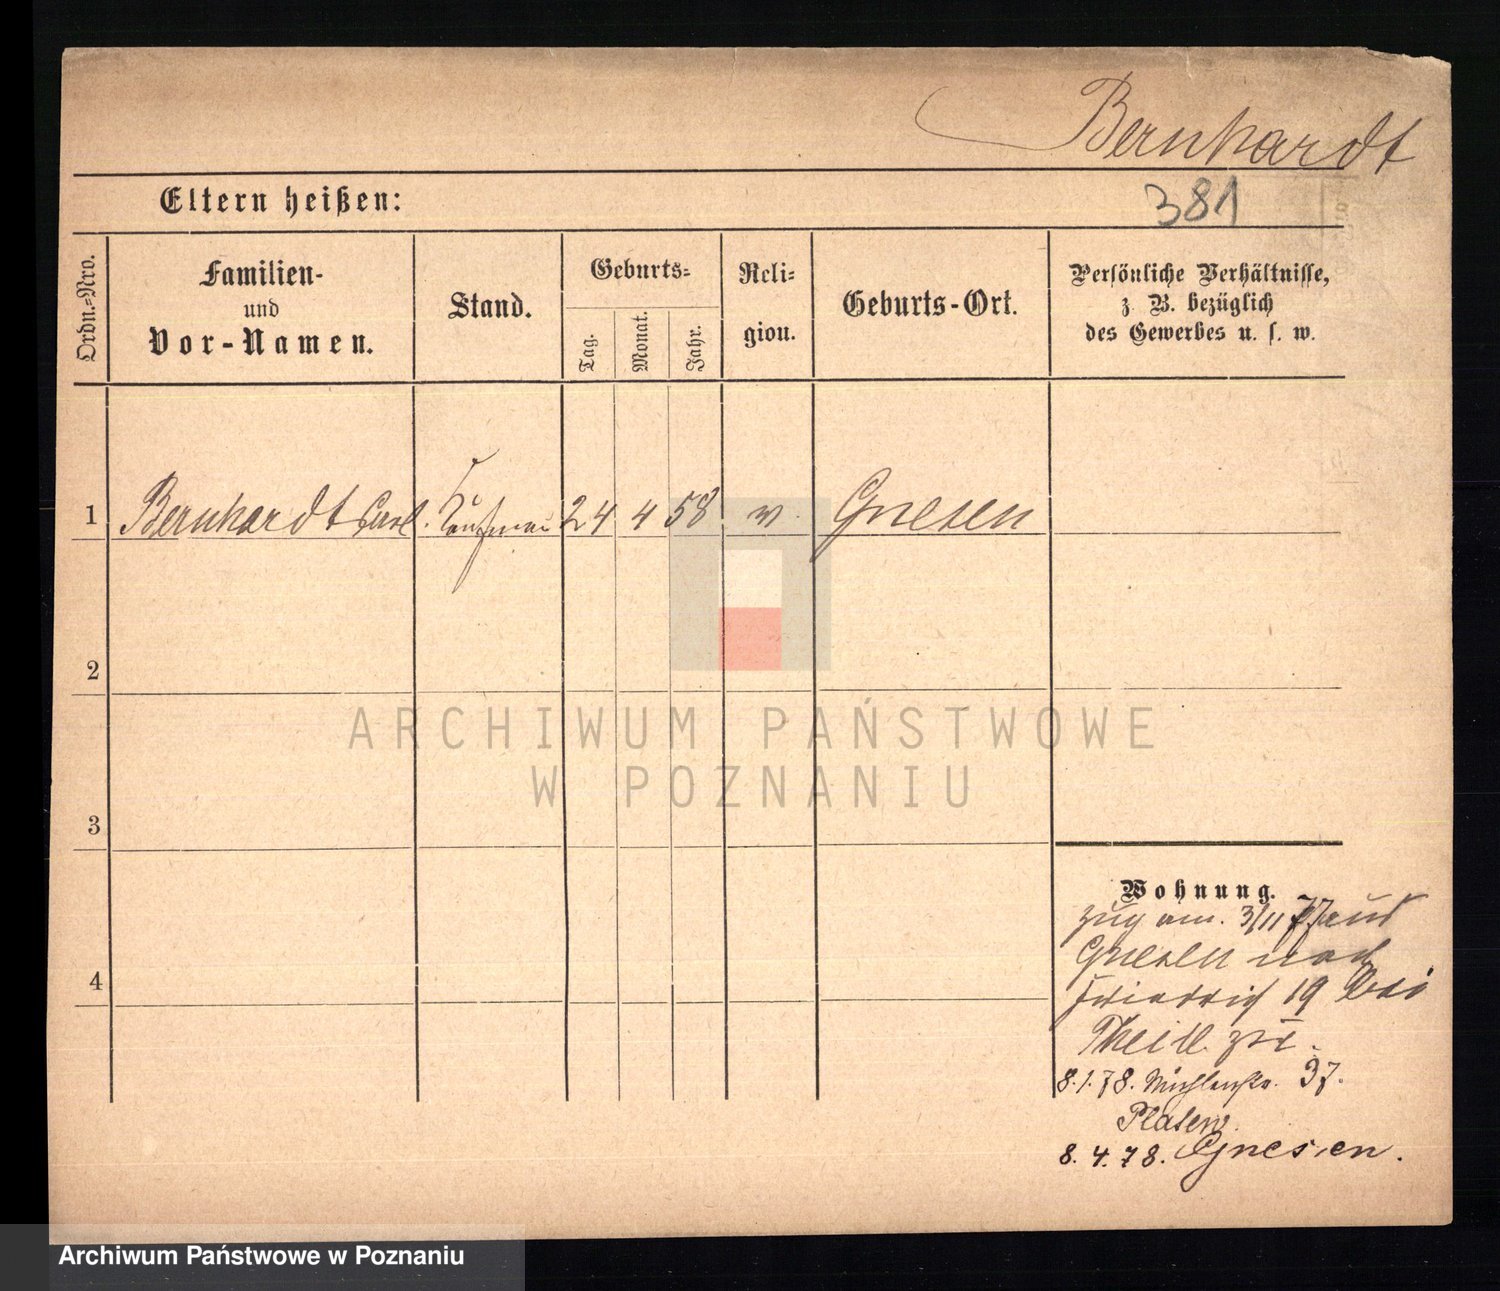 Bernhardt
Eltern heißen:
381
Ordn.=Nro.
Familien-
und
Vor-Namen.
Stand.
Geburts=
Tag.
Monat.
Jahr.
Reli=
gion.
Geburts-Ort.
Persönliche Verhältnisse,
z. B. bezüglich
des Gewerbes u. s. w.
1 Bernhardt Carl. Kaufmann 24 4 58 Gnesen
2
3
4
ARCHIWUM PAŃSTWOWE
W POZNANIU
Wohnung.
zug am. 3/11 77 aus
Gnesen nach
Friedrich 19 bei
8.1.78. Mühlenstr. 37.
8.4.78. Gnesen.
Archiwum Państwowe w Poznaniu